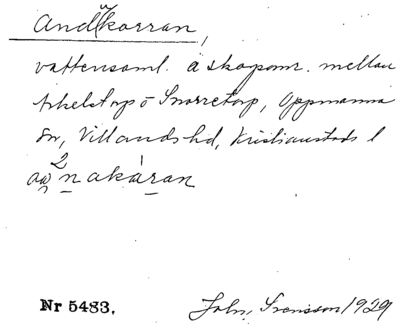 Andkorran,
vattensaml. å skogsomr. mellan
Arkelstorp o Snorretorp, Oppmanna
sn, Villands hd, Kristianstads l
nakáran
Nr 5483. John. Svensson 1929